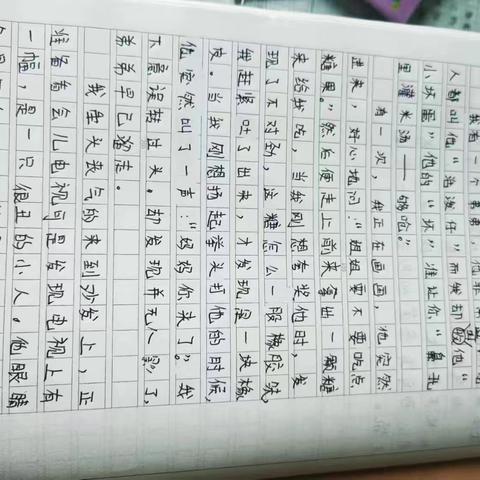 我有一个弟弟，他非常
人都叫他“淘 仔”而我却 他“
小坏蛋”他的“坏”准让你“鼻孔
里灌米汤——够呛。”
有一次，我正在画画，他突然
过来，好心地问：“姐姐要不要吃点
糖果。”然后便走上前来拿出一颗糖
来给我吃，当我刚想夸奖他时，发
现了不对劲，这糖怎么一股橡胶味，
我赶紧吐了出来，才发现是一块橡
皮。当我刚想扬起拳头打他的时候，
他突然叫了一声：“妈妈你来了。”我
不意误转过头。却发现并无人影了，
弟弟早已溜走。
我垂头丧气的来到沙发上，正
准备看会儿电视可是发现电视上有
一幅，是一只很丑的小人。他眼睛